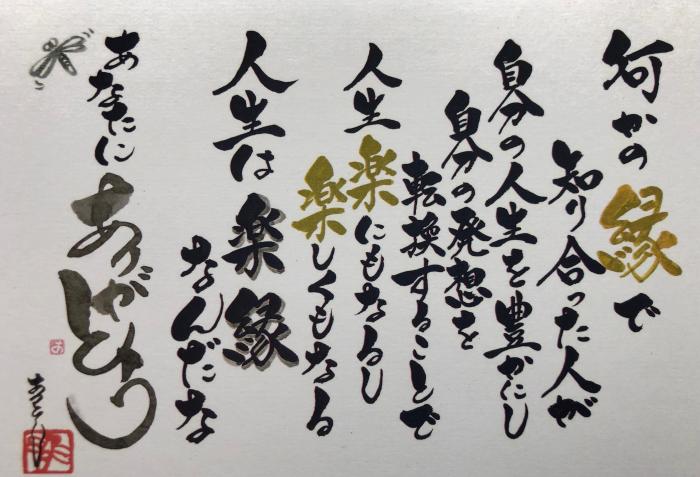 何かの縁で
知り合った人が
自分の人生を豊かにし
自分の発想を
転換することで
人生楽にもなるし
楽しくもなる
人生は楽縁
なんだな
あなたに
ありがとう